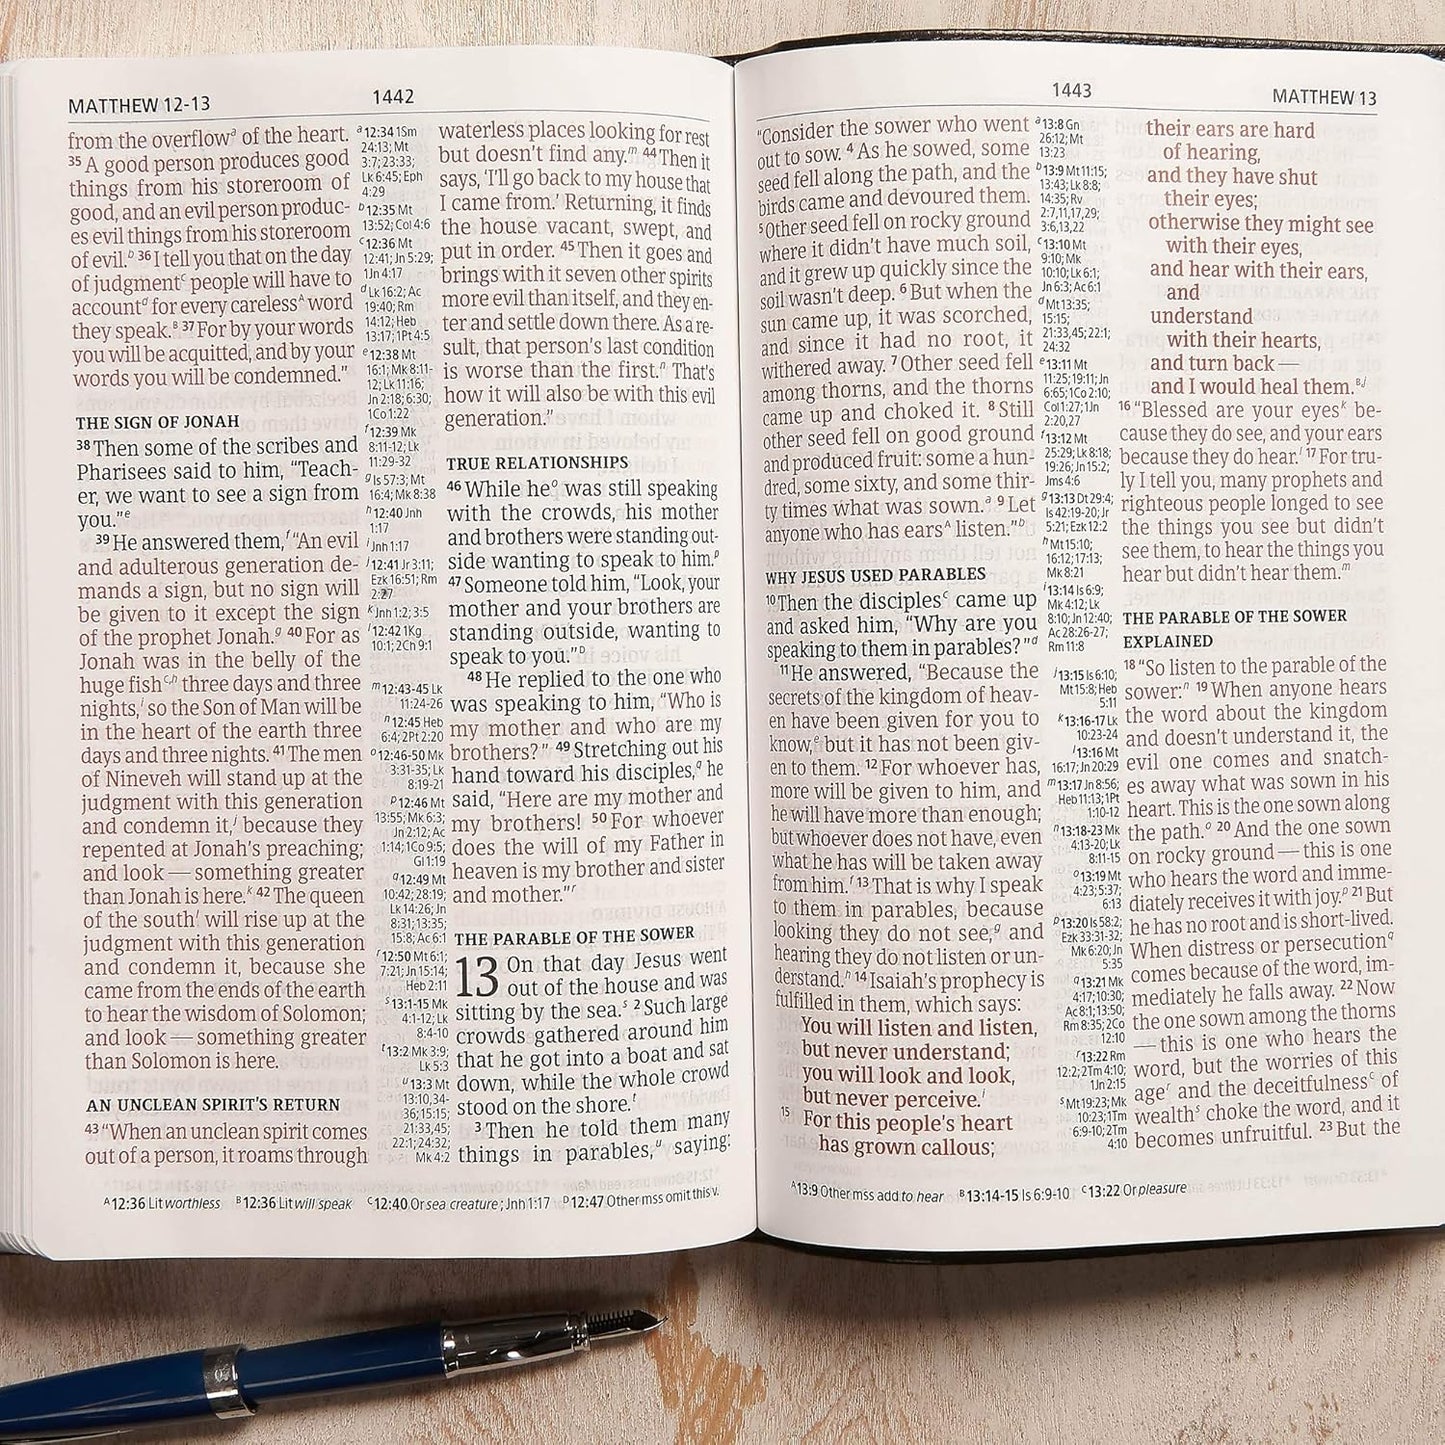 MATTHEW 12-13
1442
from the overflowᵃ of the heart.
³⁵ A good person produces good
things from his storeroom of
good, and an evil person produc-
es evil things from his storeroom
of evil.ᵇ ³⁶ I tell you that on the day
of judgmentᶜ people will have to
accountᵈ for every carelessᴬ word
they speak.ᴮ ³⁷ For by your words
you will be acquitted, and by your
words you will be condemned."
THE SIGN OF JONAH
³⁸ Then some of the scribes and
Pharisees said to him, "Teach-
er, we want to see a sign from
you."ᵉ
³⁹ He answered them,ᶠ "An evil
and adulterous generation de-
mands a sign, but no sign will
be given to it except the sign
of the prophet Jonah.ᵍ ⁴⁰ For as
Jonah was in the belly of the
huge fishᶜ,ʰ three days and three
nights,ⁱ so the Son of Man will be
in the heart of the earth three
days and three nights. ⁴¹ The men
of Nineveh will stand up at the
judgment with this generation
and condemn it,ʲ because they
repented at Jonah's preaching;
and look — something greater
than Jonah is here.ᵏ ⁴² The queen
of the southˡ will rise up at the
judgment with this generation
and condemn it, because she
came from the ends of the earth
to hear the wisdom of Solomon;
and look — something greater
than Solomon is here.
AN UNCLEAN SPIRIT'S RETURN
⁴³ "When an unclean spirit comes
out of a person, it roams through
ᵃ 12:34 1Sm
24:13; Mt
3:7; 23:33;
Lk 6:45; Eph
4:29
ᵇ 12:35 Mt
13:52; Col 4:6
ᶜ 12:36 Mt
12:41; Jn 5:29;
1Jn 4:17
ᵈ Lk 16:2; Ac
19:40; Rm
14:12; Heb
13:17; 1Pt 4:5
ᵉ 12:38 Mt
16:1; Mk 8:11-
12; Lk 11:16;
Jn 2:18; 6:30;
1Co 1:22
ᶠ 12:39 Mk
8:11-12; Lk
11:29-32
ᵍ Is 57:3; Mt
16:4; Mk 8:38
ʰ 12:40 Jnh
1:17
ⁱ Jnh 1:17
ʲ 12:41 Jr 3:11;
Ezk 16:51; Rm
2:27
ᵏ Jnh 1:2; 3:5
ˡ 12:42 1Kg
10:1; 2Ch 9:1
ᵐ 12:43-45 Lk
11:24-26
ⁿ 12:45 Heb
6:4; 2Pt 2:20
ᵒ 12:46-50 Mk
3:31-35; Lk
8:19-21
ᵖ 12:46 Mt
13:55; Mk 6:3;
Jn 2:12; Ac
1:14; 1Co 9:5;
Gl 1:19
q 12:49 Mt
10:42; 28:19;
Lk 14:26; Jn
8:31; 13:35;
15:8; Ac 6:1
ʳ 12:50 Mt 6:1;
7:21; Jn 15:14;
Heb 2:11
ˢ 13:1-15 Mk
4:1-12; Lk
8:4-10
ᵗ 13:2 Mk 3:9;
Lk 5:3
ᵘ 13:3 Mt
13:10,34-
36; 15:15;
21:33,45;
22:1; 24:32;
Mk 4:2
waterless places looking for rest
but doesn't find any.ᵐ ⁴⁴ Then it
says, 'I'll go back to my house that
I came from.' Returning, it finds
the house vacant, swept, and
put in order. ⁴⁵ Then it goes and
brings with it seven other spirits
more evil than itself, and they en-
ter and settle down there. As a re-
sult, that person's last condition
is worse than the first.ⁿ That's
how it will also be with this evil
generation."
TRUE RELATIONSHIPS
⁴⁶ While heᵒ was still speaking
with the crowds, his mother
and brothers were standing out-
side wanting to speak to him.ᵖ
⁴⁷ Someone told him, "Look, your
mother and your brothers are
standing outside, wanting to
speak to you."ᴰ
⁴⁸ He replied to the one who
was speaking to him, "Who is
my mother and who are my
brothers?" ⁴⁹ Stretching out his
hand toward his disciples,q he
said, "Here are my mother and
my brothers! ⁵⁰ For whoever
does the will of my Father in
heaven is my brother and sister
and mother."ʳ
THE PARABLE OF THE SOWER
13 On that day Jesus went
out of the house and was
sitting by the sea.ˢ ² Such large
crowds gathered around him
that he got into a boat and sat
down, while the whole crowd
stood on the shore.ᵗ
³ Then he told them many
things in parables,ᵘ saying:
ᴬ 12:36 Lit worthless ᴮ 12:36 Lit will speak ᶜ 12:40 Or sea creature; Jnh 1:17 ᴰ 12:47 Other mss omit this v.
1443
MATTHEW 13
"Consider the sower who went
out to sow. ⁴ As he sowed, some
seed fell along the path, and the
birds came and devoured them.
⁵ Other seed fell on rocky ground
where it didn't have much soil,
and it grew up quickly since the
soil wasn't deep. ⁶ But when the
sun came up, it was scorched,
and since it had no root, it
withered away. ⁷ Other seed fell
among thorns, and the thorns
came up and choked it. ⁸ Still
other seed fell on good ground
and produced fruit: some a hun-
dred, some sixty, and some thir-
ty times what was sown.ᵃ ⁹ Let
anyone who has earsᴬ listen."ᵇ
WHY JESUS USED PARABLES
¹⁰ Then the disciplesᶜ came up
and asked him, "Why are you
speaking to them in parables?"ᵈ
¹¹ He answered, "Because the
secrets of the kingdom of heav-
en have been given for you to
know,ᵉ but it has not been giv-
en to them. ¹² For whoever has,
more will be given to him, and
he will have more than enough;
but whoever does not have, even
what he has will be taken away
from him.ᶠ ¹³ That is why I speak
to them in parables, because
looking they do not see,ᵍ and
hearing they do not listen or un-
derstand.ʰ ¹⁴ Isaiah's prophecy is
fulfilled in them, which says:
You will listen and listen,
but never understand;
you will look and look,
but never perceive.ⁱ
¹⁵ For this people's heart
has grown callous;
ᵃ 13:8 Gn
26:12; Mt
13:23
ᵇ 13:9 Mt 11:15;
13:43; Lk 8:8;
14:35; Rv
2:7,11,17,29;
3:6,13,22
ᶜ 13:10 Mt
9:10; Mk
10:10; Lk 6:1;
Jn 6:3; Ac 6:1
ᵈ Mt 13:35;
15:15;
21:33,45; 22:1;
24:32
ᵉ 13:11 Mt
11:25; 19:11; Jn
6:65; 1Co 2:10;
Col 1:27; 1Jn
2:20,27
ᶠ 13:12 Mt
25:29; Lk 8:18;
19:26; Jn 15:2;
Jms 4:6
ᵍ 13:13 Dt 29:4;
Is 42:19-20; Jr
5:21; Ezk 12:2
ʰ Mt 15:10;
16:12; 17:13;
Mk 8:21
ⁱ 13:14 Is 6:9;
Mk 4:12; Lk
8:10; Jn 12:40;
Ac 28:26-27;
Rm 11:8
ʲ 13:15 Is 6:10;
Mt 15:8; Heb
5:11
ᵏ 13:16-17 Lk
10:23-24
ˡ 13:16 Mt
16:17; Jn 20:29
ᵐ 13:17 Jn 8:56;
Heb 11:13; 1Pt
1:10-12
ⁿ 13:18-23 Mk
4:13-20; Lk
8:11-15
ᵒ 13:19 Mt
4:23; 5:37;
6:13
ᵖ 13:20 Is 58:2;
Ezk 33:31-32;
Mk 6:20; Jn
5:35
q 13:21 Mk
4:17; 10:30;
Ac 8:1; 13:50;
Rm 8:35; 2Co
12:10
ʳ 13:22 Rm
12:2; 2Tm 4:10;
1Jn 2:15
ˢ Mt 19:23; Mk
10:23; 1Tm
6:9-10; 2Tm
4:10
their ears are hard
of hearing,
and they have shut
their eyes;
otherwise they might see
with their eyes,
and hear with their ears,
and
understand
with their hearts,
and turn back —
and I would heal them.ᴮ,ʲ
¹⁶ "Blessed are your eyesᵏ be-
cause they do see, and your ears
because they do hear.ˡ ¹⁷ For tru-
ly I tell you, many prophets and
righteous people longed to see
the things you see but didn't
see them, to hear the things you
hear but didn't hear them.ᵐ
THE PARABLE OF THE SOWER
EXPLAINED
¹⁸ "So listen to the parable of the
sower:ⁿ ¹⁹ When anyone hears
the word about the kingdom
and doesn't understand it, the
evil one comes and snatch-
es away what was sown in his
heart. This is the one sown along
the path.ᵒ ²⁰ And the one sown
on rocky ground — this is one
who hears the word and imme-
diately receives it with joy.ᵖ ²¹ But
he has no root and is short-lived.
When distress or persecutionq
comes because of the word, im-
mediately he falls away. ²² Now
the one sown among the thorns
— this is one who hears the
word, but the worries of this
ageʳ and the deceitfulnessᶜ of
wealthˢ choke the word, and it
becomes unfruitful. ²³ But the
ᴬ 13:9 Other mss add to hear ᴮ 13:14-15 Is 6:9-10 ᶜ 13:22 Or pleasure